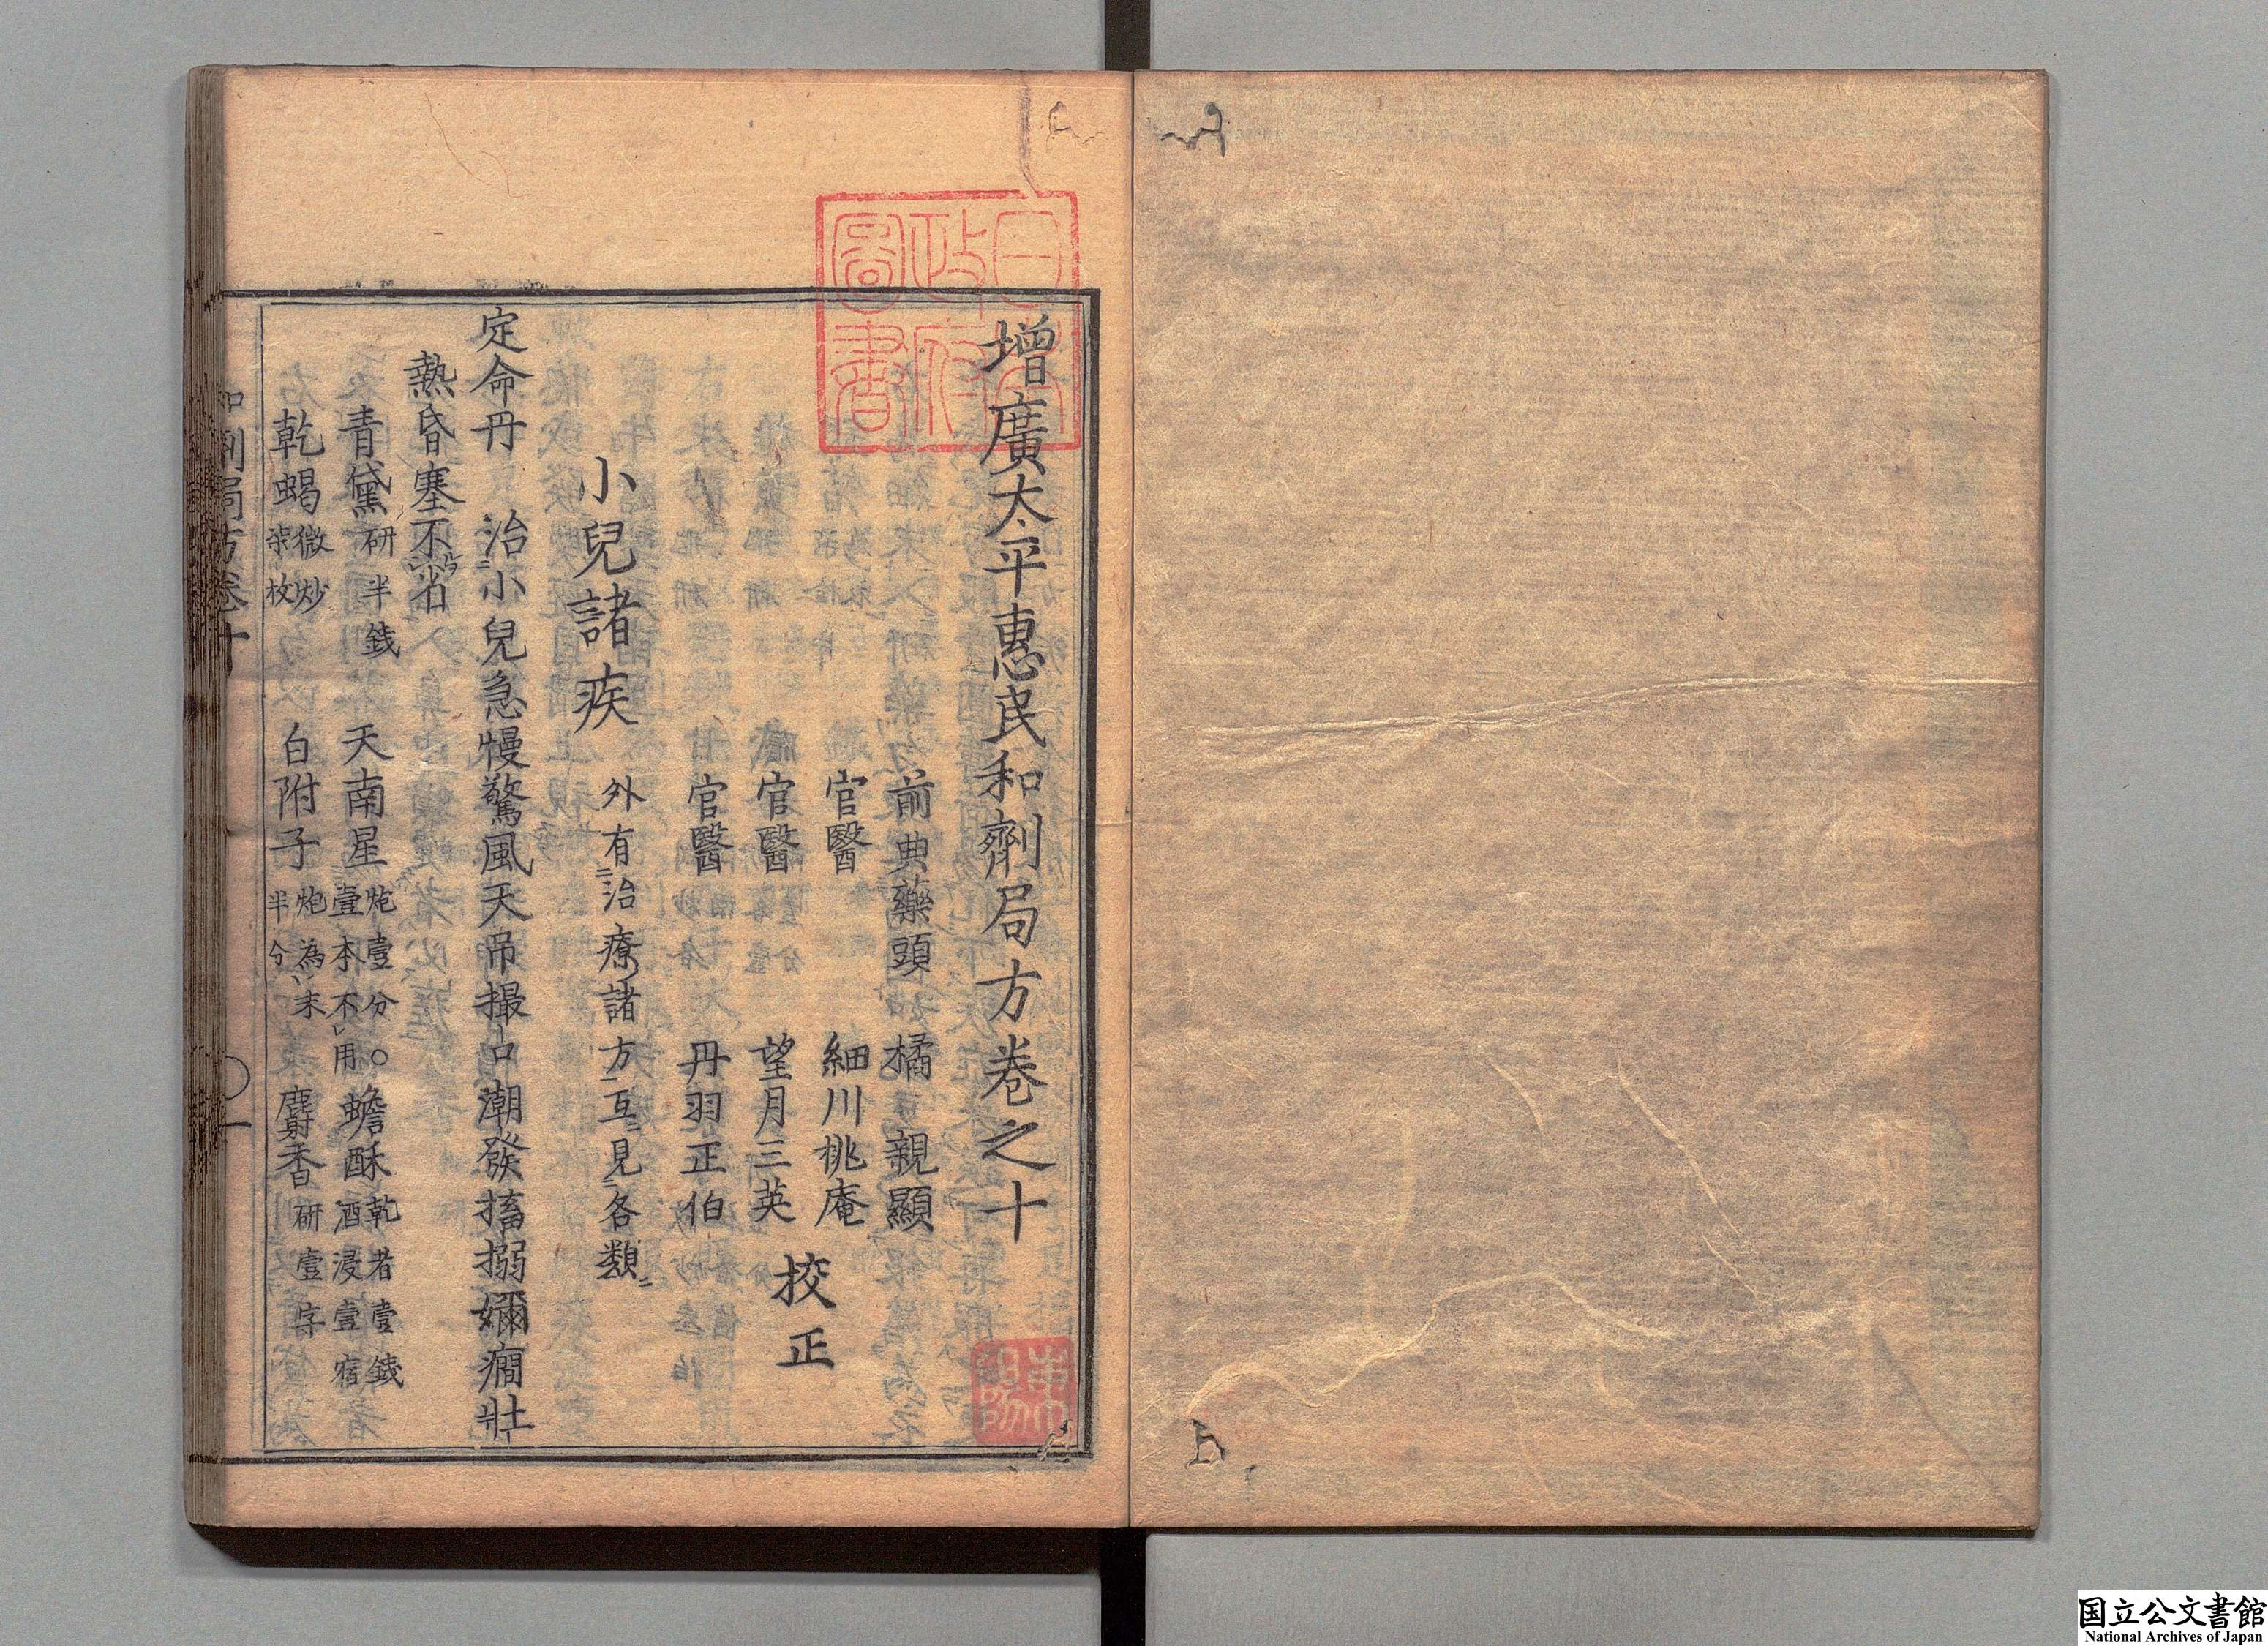 増廣太平惠民和劑局方卷之十
前典藥頭 橘 親顯
官醫 細川桃庵
官醫 望月三英
官醫 丹羽正伯
校正
小兒諸疾 外有治療諸方互見各類
定命丹 治小兒急慢驚風天吊撮口潮發搐搦嬭癇壯
熱昏塞不省
青黛研半錢 天南星炮壹分○壹本不用 蟾酥乾者壹錢酒浸壹宿
乾蝎微炒柒枚 白附子炮為末半分 麝香研壹字
和劑局方卷十 ○一
日本政府圖書
国立公文書館
National Archives of Japan